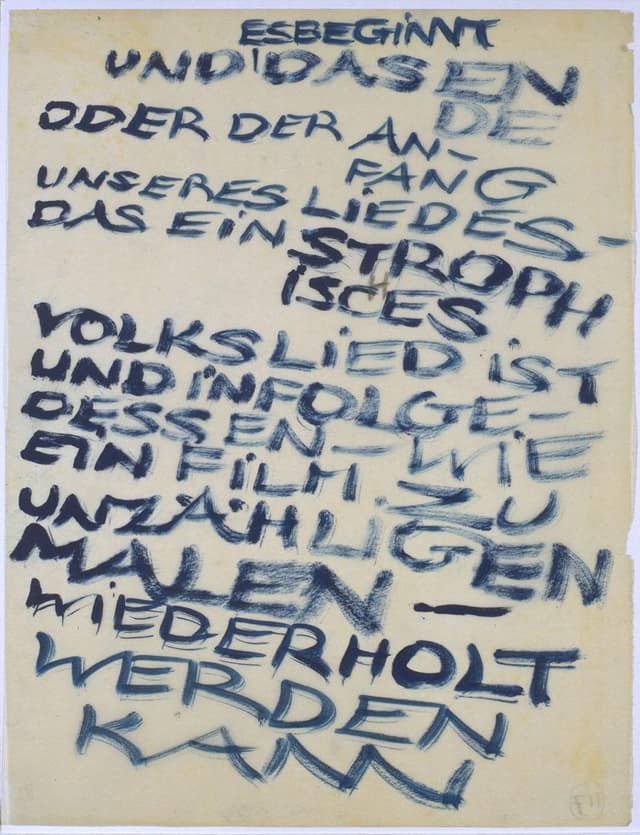 ESBEGINNT
UND DAS EN
DE
ODER DER AN-
FANG
UNSERES LIEDES-
DAS EIN STROPH
ISCHES
VOLKSLIED IST
UND INFOLGE-
DESSEN - WIE
EIN FILM. ZU
UNZÄHLIGEN
MALEN —
WIEDERHOLT
WERDEN
KANN
F11